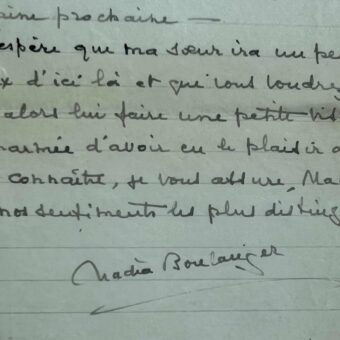 aine prochaine —
espère que ma sœur ira un pe
x d'ici là et que vous voudre
alors lui faire une petite vis
armée d'avoir eu le plaisir d
connaître, je vous assure, Ma
nos sentiments les plus disting
Nadia Boulanger